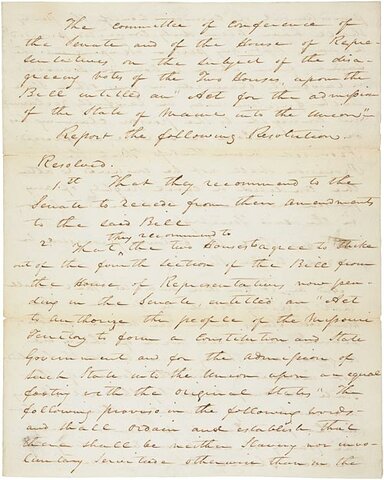 The committee of conference of
the Senate and of the House of Repre
sentatives on the subject of the disa-
greeing votes of the Two Houses, upon the
Bill entitled an "Act for the admission
of the State of Maine into the Union"
Report the following Resolution.
Resolved.
1st That they recommend to the
Senate to recede from their amendments
to the said Bill
they recommend to
2d That the two Houses agree to strike
out of the fourth section of the Bill from
the House of Representatives now pen-
ding in the Senate, entitled an "Act
to authorize the people of the Missouri
Territory to form a Constitution and State
Government and for the admission of
such State into the Union upon an equal
footing with the original States" The
following proviso in the following words-
and shall ordain and establish that
there shall be neither Slavery nor invo-
luntary servitude otherwise than in the